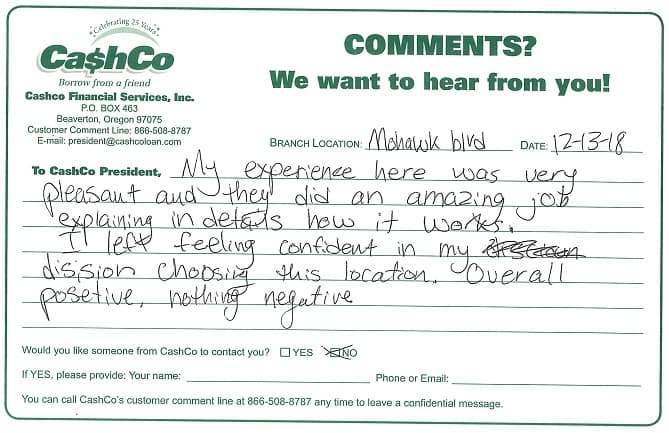 Celebrating 25 Years
Ca$hCo
Borrow from a friend
Cashco Financial Services, Inc.
P.O. BOX 463
Beaverton, Oregon 97075
Customer Comment Line: 866-508-8787
E-mail: president@cashcoloan.com
COMMENTS?
We want to hear from you!
BRANCH LOCATION: Mohawk blvd DATE: 12-13-18
To CashCo President, My experience here was very
pleasant and they did an amazing job
explaining in details how it works.
I left feeling confident in my
dision choosing this location. Overall
posetive, nothing negative
Would you like someone from CashCo to contact you? YES NO
If YES, please provide: Your name: Phone or Email:
You can call CashCo's customer comment line at 866-508-8787 any time to leave a confidential message.